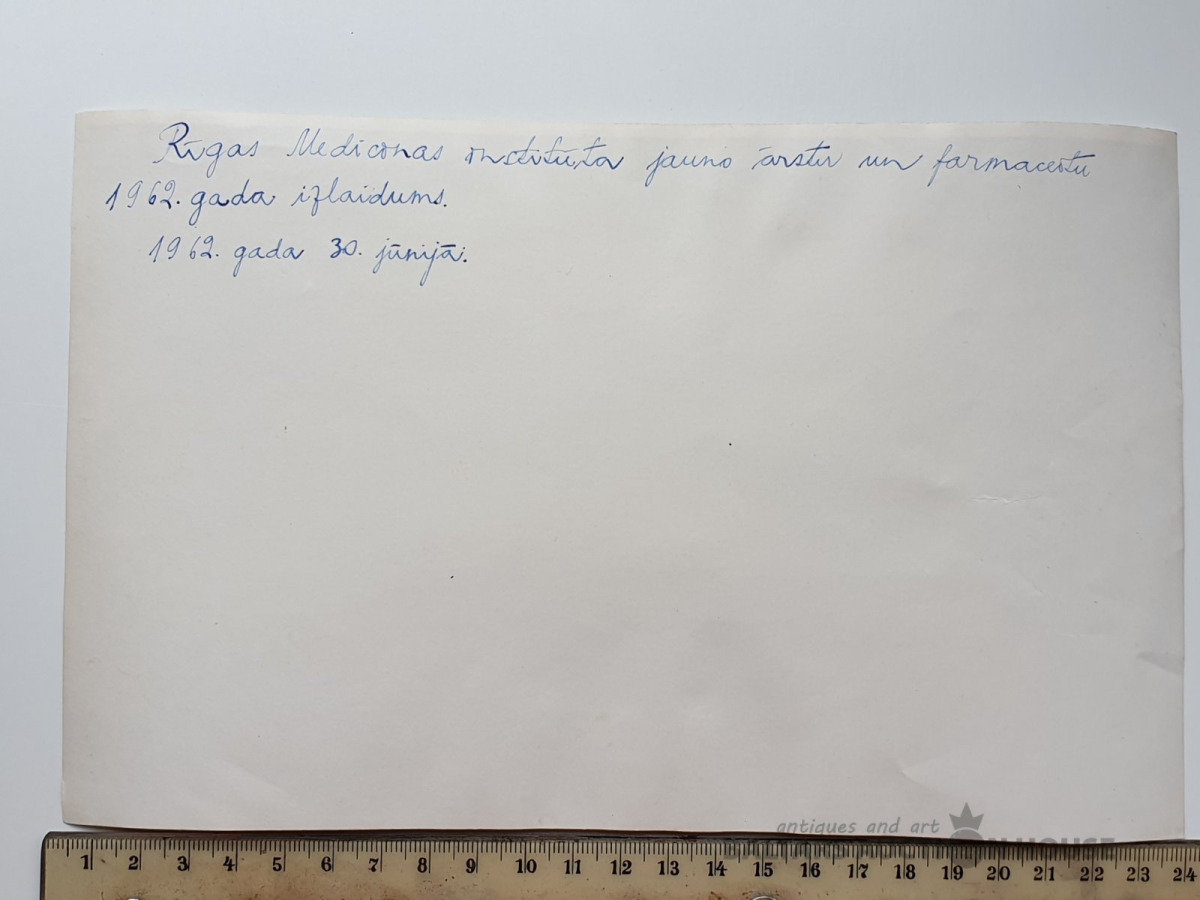 Rīgas Medicīnas institūta jauno ārstu un farmaceitu
1962. gada izlaidums.
1962. gada 30. jūnijā.
antiques and art
HOUSE
1 2 3 4 5 6 7 8 9 10 11 12 13 14 15 16 17 18 19 20 21 22 23 24